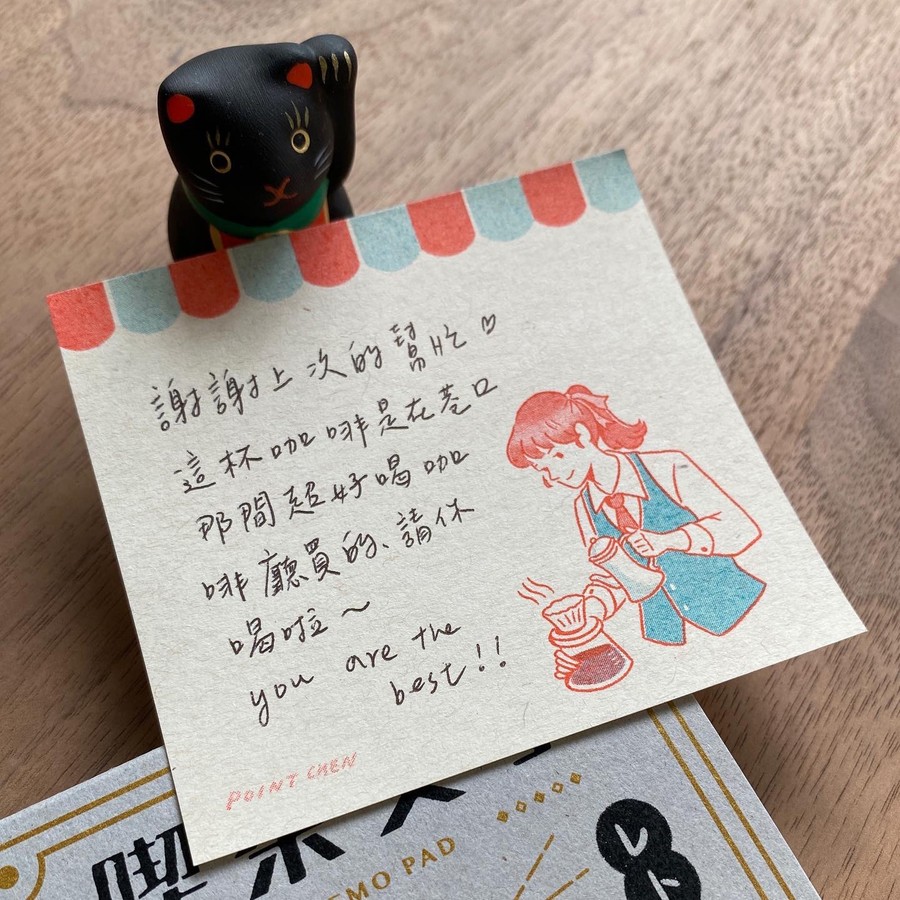 謝謝上次的幫忙♡
這杯咖啡是在巷口
那間超好喝咖
啡廳買的、請你
喝啦～
you are the
best!!
POINT CHEN
喫茶
MEMO PAD